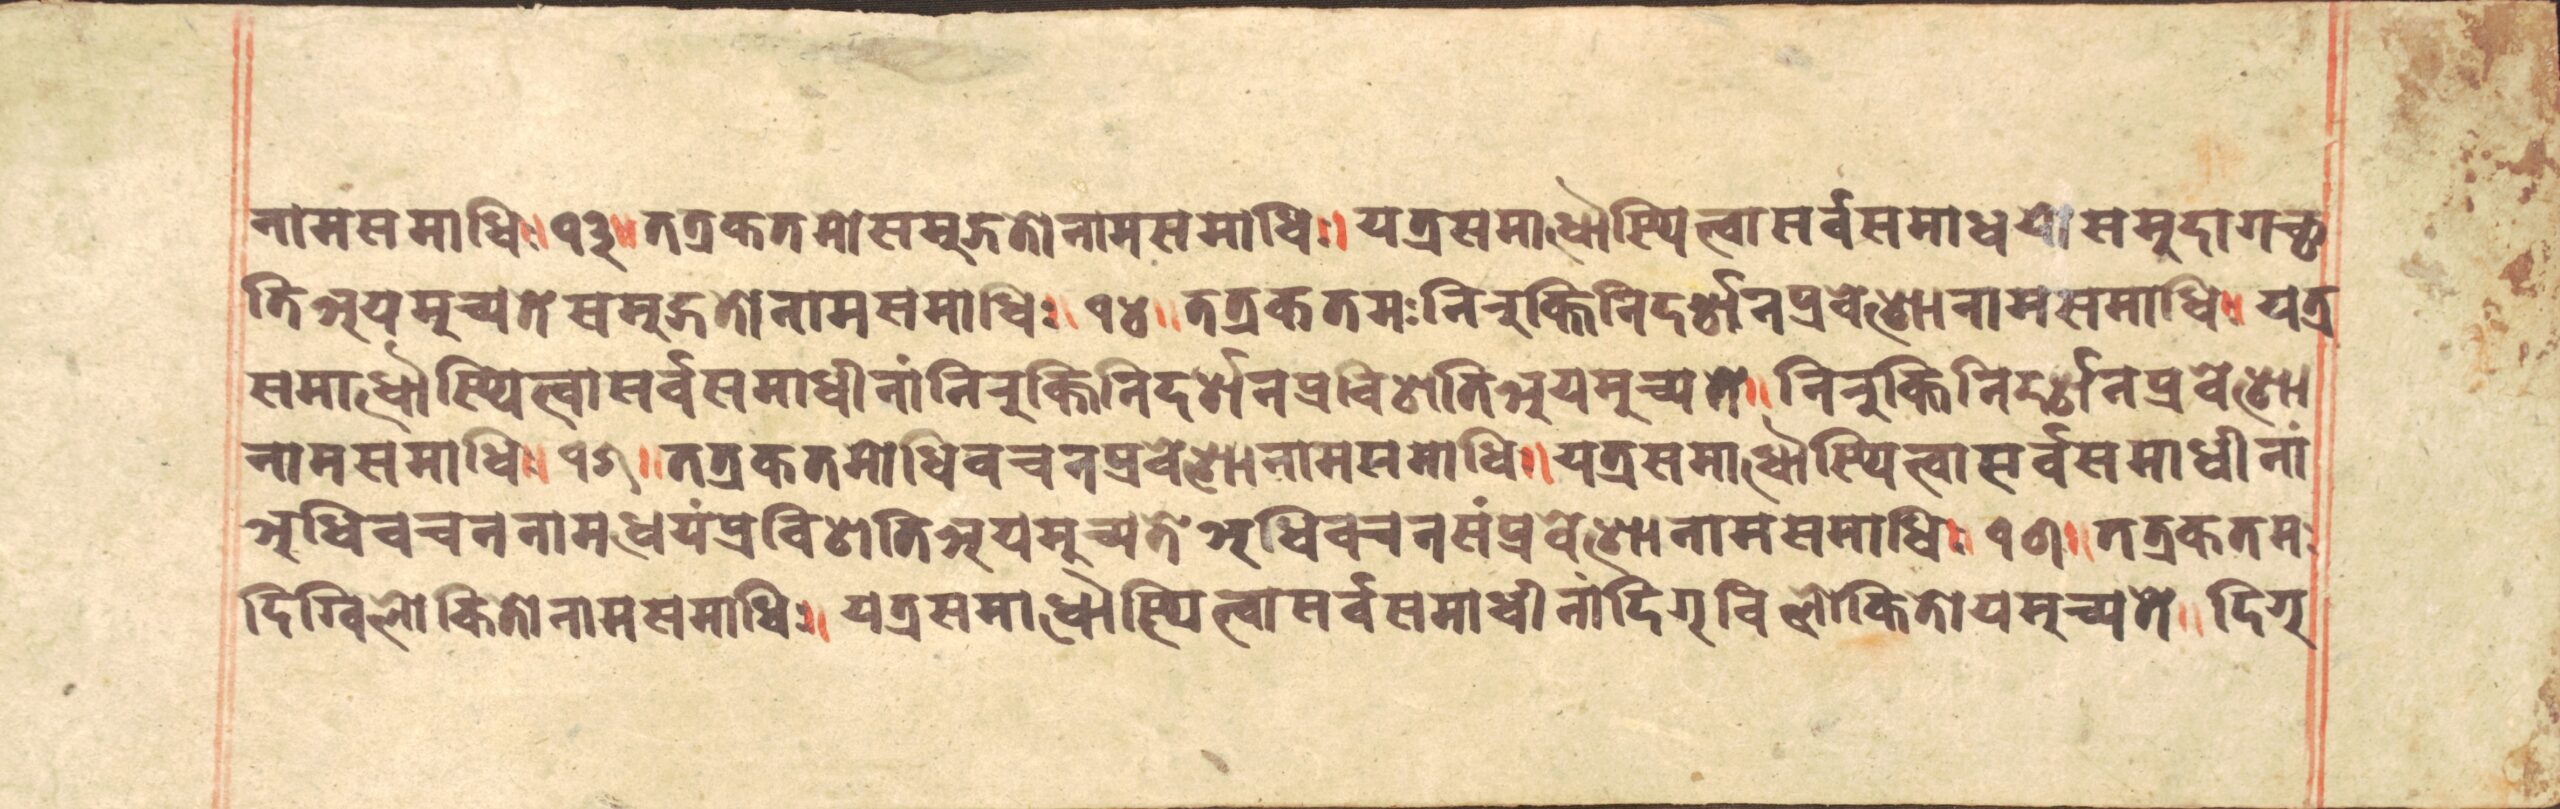 नामसमाधिः॥१३॥तत्रकतमोसमुद्गतोनामसमाधिः॥यत्रसमाधौस्थित्वासर्वसमाधयोसमुदागच्छ
तिअयमुच्यतेसमुद्गतोनामसमाधिः॥१४॥तत्रकतमःनिरुक्तिनिदर्शनप्रवेशोनामसमाधिः॥यत्र
समाधौस्थित्वासर्वसमाधीनांनिरुक्तिनिदर्शनप्रविशतिअयमुच्यते॥निरुक्तिनिदर्शनप्रवेशो
नामसमाधिः॥१५॥तत्रकतमोधिवचनप्रवेशोनामसमाधिः॥यत्रसमाधौस्थित्वासर्वसमाधीनां
अधिवचननामधेयंप्रविशतिअयमुच्यतेअधिवचनसंप्रवेशोनामसमाधिः॥१६॥तत्रकतमः
दिग्विलोकितोनामसमाधिः॥यत्रसमाधौस्थित्वासर्वसमाधीनांदिग्विलोकितोयमुच्यते॥दिग्